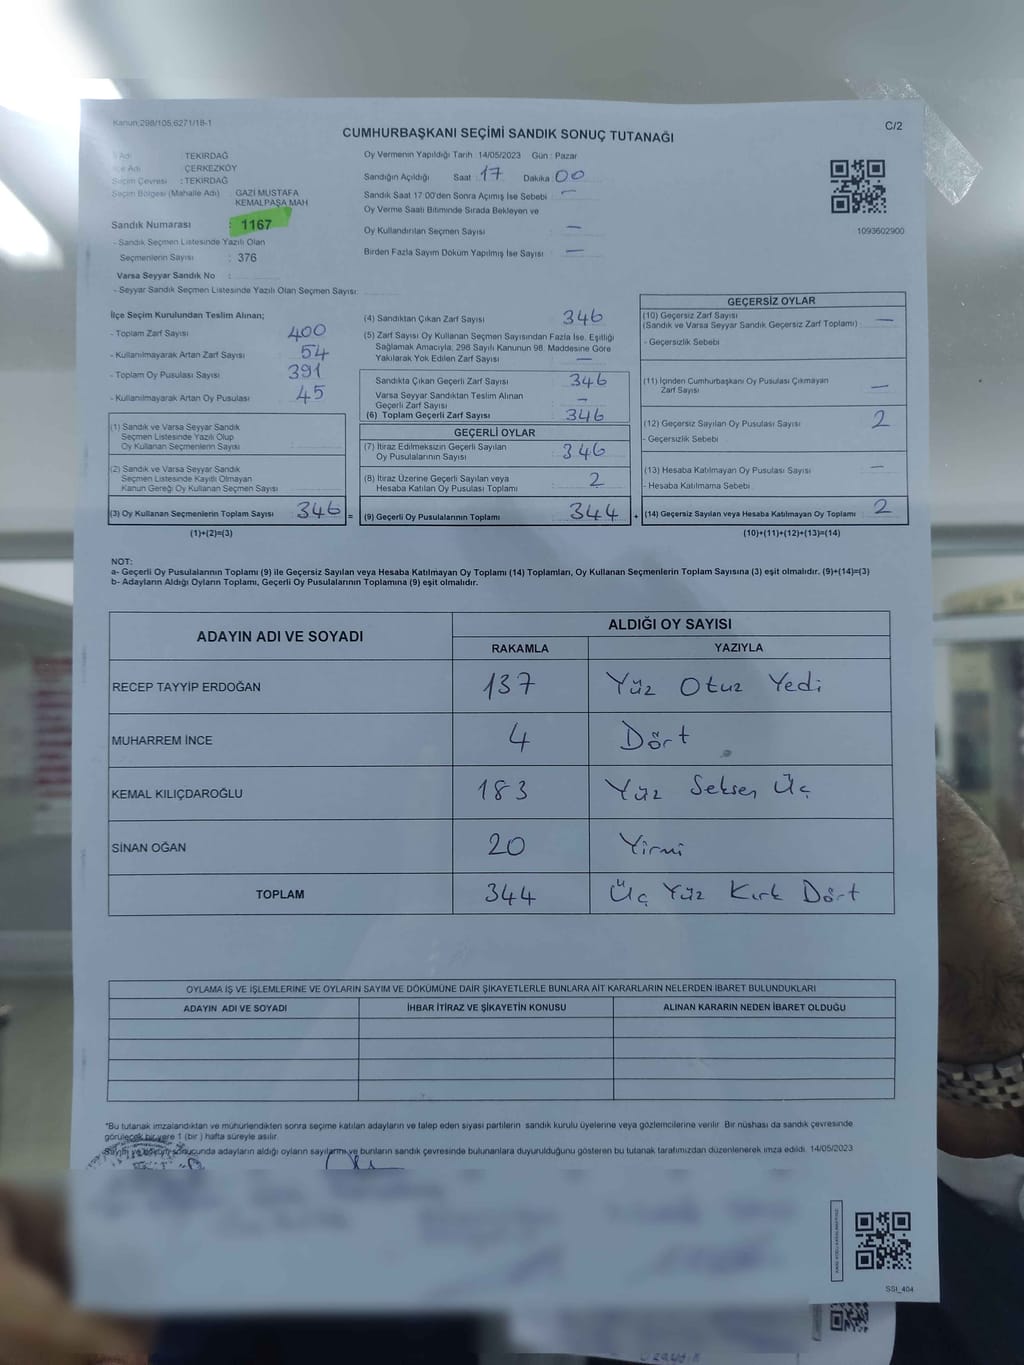 Kanun:298/105,6271/18-1
C/2
CUMHURBAŞKANI SEÇİMİ SANDIK SONUÇ TUTANAĞI
İl Adı : TEKİRDAĞ
İlçe Adı : ÇERKEZKÖY
Seçim Çevresi : TEKİRDAĞ
Seçim Bölgesi (Mahalle Adı) : GAZİ MUSTAFA
KEMALPAŞA MAH
Sandık Numarası : 1167
- Sandık Seçmen Listesinde Yazılı Olan
Seçmenlerin Sayısı : 376
Varsa Seyyar Sandık No :
- Seyyar Sandık Seçmen Listesinde Yazılı Olan Seçmen Sayısı:
Oy Vermenin Yapıldığı Tarih : 14/05/2023 Gün : Pazar
Sandığın Açıldığı Saat 17 Dakika 00
Sandık Saat 17:00'den Sonra Açımış İse Sebebi —
Oy Verme Saati Bitiminde Sırada Bekleyen ve
Oy Kullandırılan Seçmen Sayısı —
Birden Fazla Sayım Döküm Yapılmış İse Sayısı —
1093602900
İlçe Seçim Kurulundan Teslim Alınan;
- Toplam Zarf Sayısı 400
- Kullanılmayarak Artan Zarf Sayısı 54
- Toplam Oy Pusulası Sayısı 391
- Kullanılmayarak Artan Oy Pusulası 45
(1) Sandık ve Varsa Seyyar Sandık
Seçmen Listesinde Yazılı Olup
Oy Kullanan Seçmenlerin Sayısı
(2) Sandık ve Varsa Seyyar Sandık
Seçmen Listesinde Kayıtlı Olmayan
Kanun Gereği Oy Kullanan Seçmen Sayısı
(3) Oy Kullanan Seçmenlerin Toplam Sayısı 346 =
(1)+(2)=(3)
(4) Sandıktan Çıkan Zarf Sayısı 346
(5) Zarf Sayısı Oy Kullanan Seçmen Sayısından Fazla İse, Eşitliği
Sağlamak Amacıyla; 298 Sayılı Kanunun 98. Maddesine Göre
Yakılarak Yok Edilen Zarf Sayısı —
Sandıkta Çıkan Geçerli Zarf Sayısı 346
Varsa Seyyar Sandıktan Teslim Alınan
Geçerli Zarf Sayısı —
(6) Toplam Geçerli Zarf Sayısı 346
GEÇERLİ OYLAR
(7) İtiraz Edilmeksizin Geçerli Sayılan
Oy Pusulalarının Sayısı 346
(8) İtiraz Üzerine Geçerli Sayılan veya
Hesaba Katılan Oy Pusulası Toplamı 2
(9) Geçerli Oy Pusulalarının Toplamı 344 +
GEÇERSİZ OYLAR
(10) Geçersiz Zarf Sayısı —
(Sandık ve Varsa Seyyar Sandık Geçersiz Zarf Toplamı)
- Geçersizlik Sebebi
(11) İçinden Cumhurbaşkanı Oy Pusulası Çıkmayan
Zarf Sayısı —
(12) Geçersiz Sayılan Oy Pusulası Sayısı 2
- Geçersizlik Sebebi
(13) Hesaba Katılmayan Oy Pusulası Sayısı —
- Hesaba Katılmama Sebebi
(14) Geçersiz Sayılan veya Hesaba Katılmayan Oy Toplamı 2
(10)+(11)+(12)+(13)=(14)
NOT:
a- Geçerli Oy Pusulalarının Toplamı (9) ile Geçersiz Sayılan veya Hesaba Katılmayan Oy Toplamı (14) Toplamları, Oy Kullanan Seçmenlerin Toplam Sayısına (3) eşit olmalıdır. (9)+(14)=(3)
b- Adayların Aldığı Oyların Toplamı, Geçerli Oy Pusulalarının Toplamına (9) eşit olmalıdır.
ADAYIN ADI VE SOYADI
ALDIĞI OY SAYISI
RAKAMLA YAZIYLA
RECEP TAYYİP ERDOĞAN 137 Yüz Otuz Yedi
MUHARREM İNCE 4 Dört
KEMAL KILIÇDAROĞLU 183 Yüz Seksen Üç
SİNAN OĞAN 20 Yirmi
TOPLAM 344 Üç Yüz Kırk Dört
OYLAMA İŞ VE İŞLEMLERİNE VE OYLARIN SAYIM VE DÖKÜMÜNE DAİR ŞİKAYETLERLE BUNLARA AİT KARARLARIN NELERDEN İBARET BULUNDUKLARI
ADAYIN ADI VE SOYADI İHBAR İTİRAZ VE ŞİKAYETİN KONUSU ALINAN KARARIN NEDEN İBARET OLDUĞU
*Bu tutanak imzalandıktan ve mühürlendikten sonra seçime katılan adayların ve talep eden siyasi partilerin sandık kurulu üyelerine veya gözlemcilerine verilir. Bir nüshası da sandık çevresinde
görülecek bir yere 1 (bir ) hafta süreyle asılır.
sonucunda adayların aldığı oyların sayılarını ve bunların sandık çevresinde bulunanlara duyurulduğunu gösteren bu tutanak tarafımızdan düzenlenerek imza edildi. 14/05/2023
SSI_404